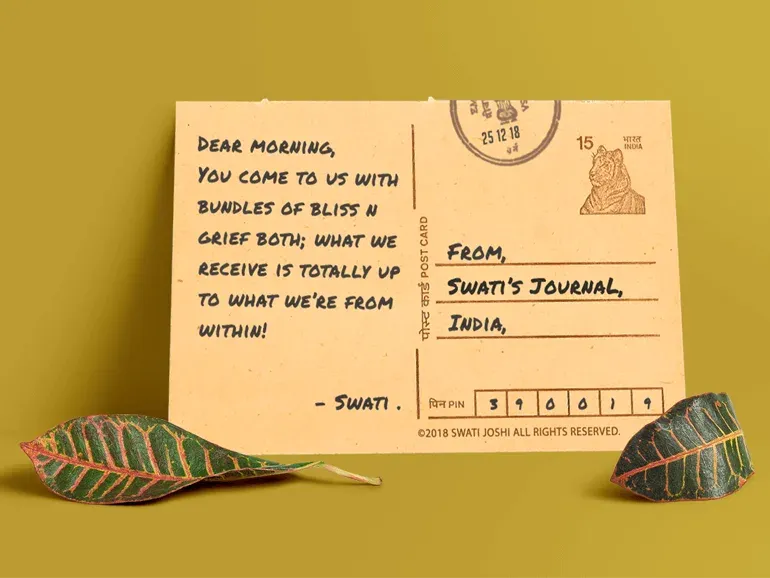 DEAR MORNING,
YOU COME TO US WITH
BUNDLES OF BLISS N
GRIEF BOTH; WHAT WE
RECEIVE IS TOTALLY UP
TO WHAT WE'RE FROM
WITHIN!
- SWATI .
25 12 18
15
भारत
INDIA
पोस्ट कार्ड POST CARD
FROM,
SWATI'S JOURNAL,
INDIA,
पिन PIN 3 9 0 0 1 9
©2018 SWATI JOSHI ALL RIGHTS RESERVED.